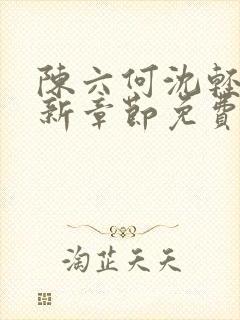 陳六何沈輕
新章節免費
淘芷天天